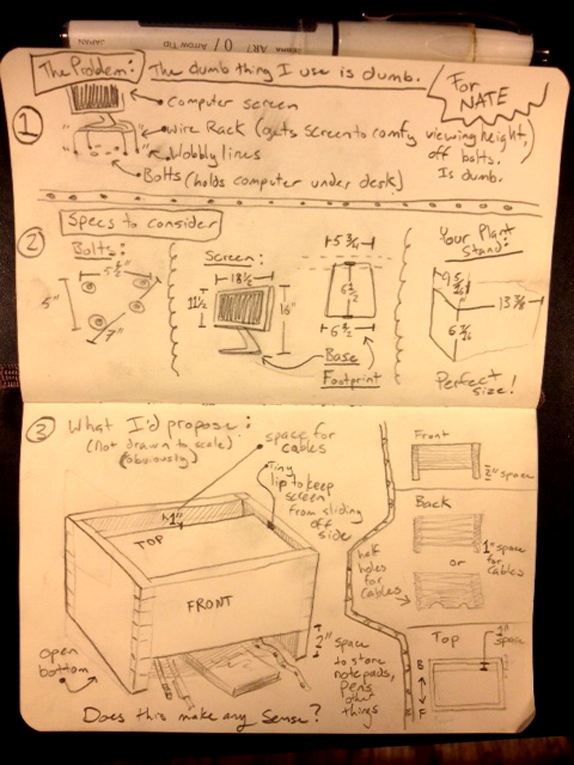 JAPAN
Arrow Tip
0/
ZEBRA
The Problem: The dumb thing I use is dumb.
For
NATE
1
Computer screen
Wire Rack (gets screen to comfy viewing height,
off bolts.
Is dumb.)
Wobbly lines
Bolts (holds computer under desk)
2
Specs to consider
Bolts:
5 1/2"
5"
7"
Screen:
18 1/2
11 1/2
16"
5 3/4
6 1/2
6 3/2
Base
Footprint
Your Plant
Stand:
13 3/8
Perfect
size!
3
What I'd propose:
(Not drawn to scale)
(obviously)
space for
cables
Tiny
lip to keep
screen
from sliding
off
side
1"
TOP
FRONT
open
bottom
2"
space
to store
notepads,
pens,
other
things
Does this make any sense?
Front
2" space
Back
1" space
for
cables
or
half
holes
for
cables
Top
1"
space
B
F